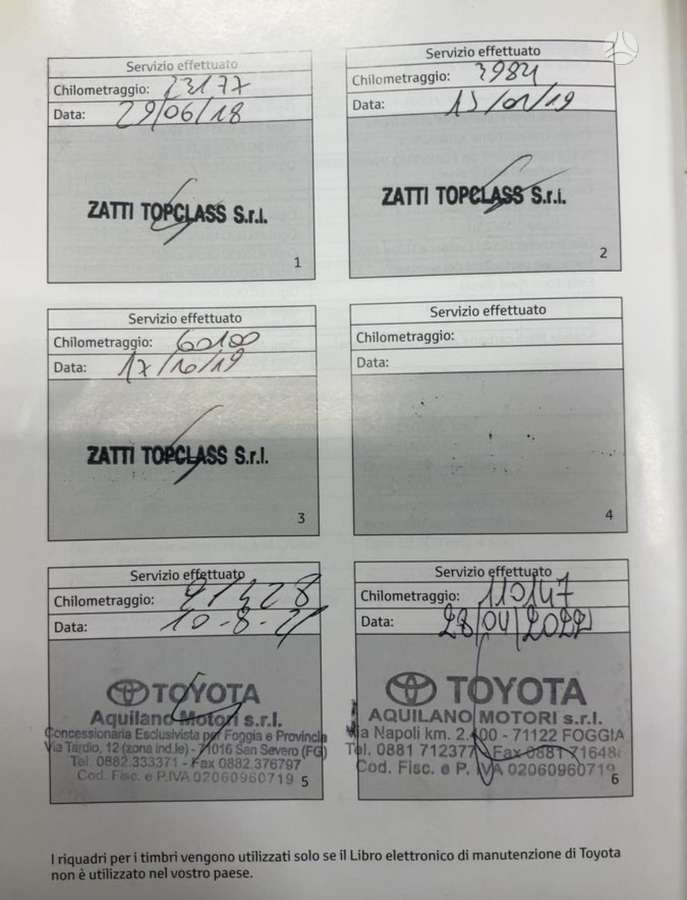 Servizio effettuato
Chilometraggio: 23177
Data: 29/06/18
ZATTI TOPCLASS S.r.l.
1
Servizio effettuato
Chilometraggio: 3984
Data: 15/01/19
ZATTI TOPCLASS S.r.l.
2
Servizio effettuato
Chilometraggio: 60100
Data: 17/10/19
ZATTI TOPCLASS S.r.l.
3
Servizio effettuato
Chilometraggio:
Data:
4
Servizio effettuato
Chilometraggio:
Data: 10-8-21
TOYOTA
Aquilano Motori s.r.l.
Concessionaria Esclusivista per Foggia e Provincia
Via Tardio, 12 (zona ind.le) - 71016 San Severo (FG)
Tel. 0882.333371 - Fax 0882.376797
Cod. Fisc. e P.IVA 02060960719
5
Servizio effettuato
Chilometraggio: 110147
Data: 28/04/2022
TOYOTA
AQUILANO MOTORI s.r.l.
Via Napoli km. 2.400 - 71122 FOGGIA
Tel. 0881 712377 - Fax 0881 71648
Cod. Fisc. e P. IVA 02060960719
6
I riquadri per i timbri vengono utilizzati solo se il Libro elettronico di manutenzione di Toyota
non è utilizzato nel vostro paese.